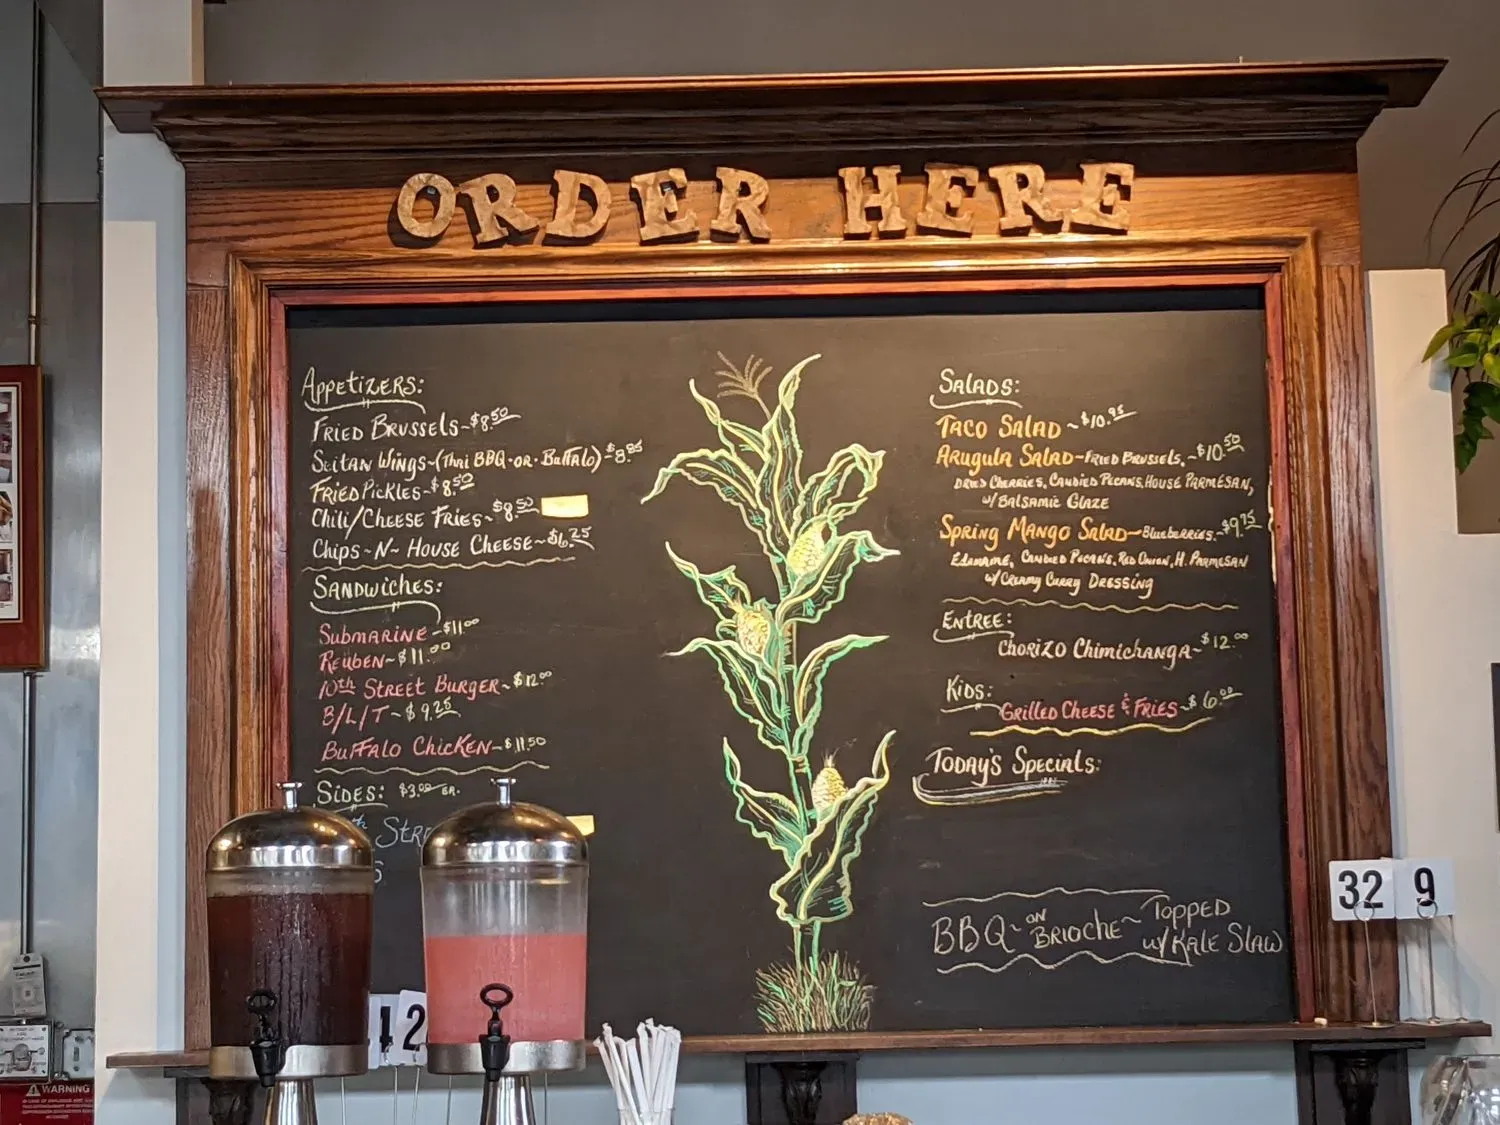 ORDER HERE
APPETIZERS:
FRIED BRUSSELS~$8.50
SEITAN WINGS~(THAI BBQ·OR·BUFFALO)~$8.85
FRIED PICKLES~$8.50
CHILI/CHEESE FRIES~$8.50
CHIPS~N~HOUSE CHEESE~$6.25
SANDWICHES:
SUBMARINE~$11.00
REUBEN~$11.00
10th STREET BURGER~$12.00
B/L/T~$9.25
BUFFALO CHICKEN~$11.50
SIDES: $3.00 EA.
SALADS:
TACO SALAD~$10.95
ARUGULA SALAD~FRIED BRUSSELS,~$10.50
DRIED CHERRIES, CANDIED PECANS, HOUSE PARMESAN,
W/BALSAMIC GLAZE
SPRING MANGO SALAD~BLUEBERRIES,~$9.75
EDAMAME, CANDIED PECANS, RED ONION, H. PARMESAN
W/CREAMY CURRY DRESSING
ENTREE:
CHORIZO CHIMICHANGA~$12.00
KIDS:
GRILLED CHEESE & FRIES~$6.00
TODAY'S SPECIALS:
BBQ~ON BRIOCHE~TOPPED
W/KALE SLAW
32 9
2
WARNING